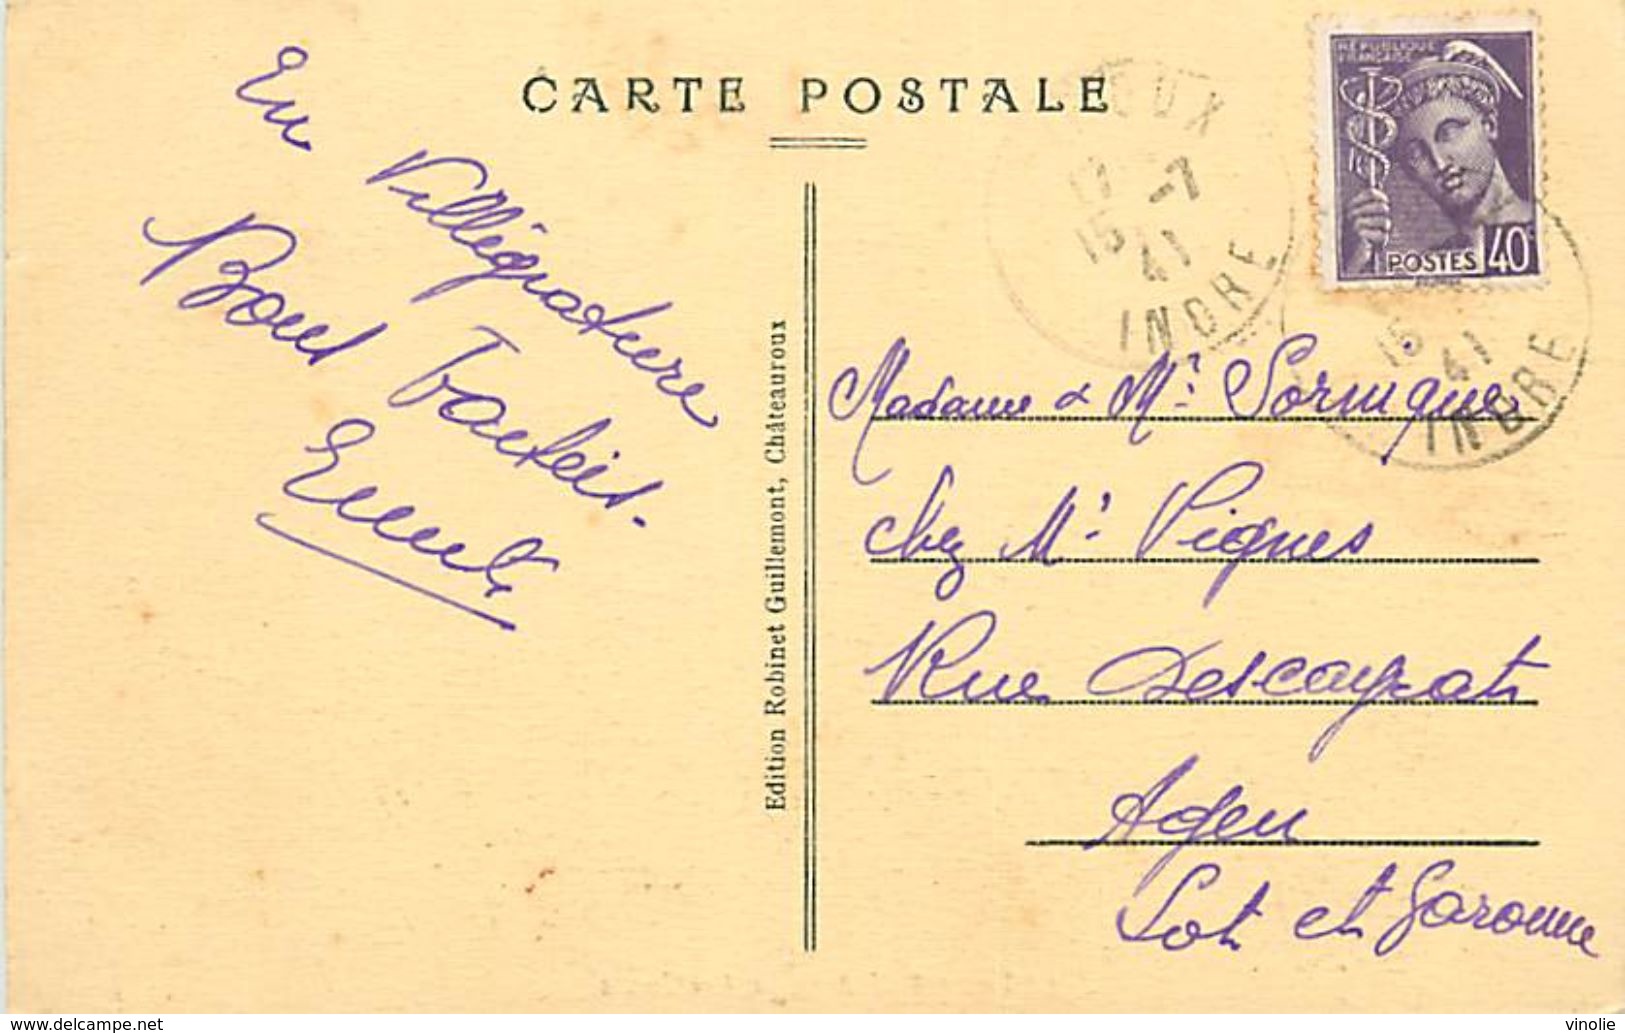 CARTE POSTALE
En
Villégiature
Bout
Ernest
Edition Robinet Guillemont, Châteauroux
RÉPUBLIQUE
FRANÇAISE
POSTES 40
17 -7
15
41
INDRE
15
41
INDRE
Madame & Mr Sormgue
chez Mr Vignes
Rue Descayrat
Agen
Lot et Garonne
www.delcampe.net
vinolie